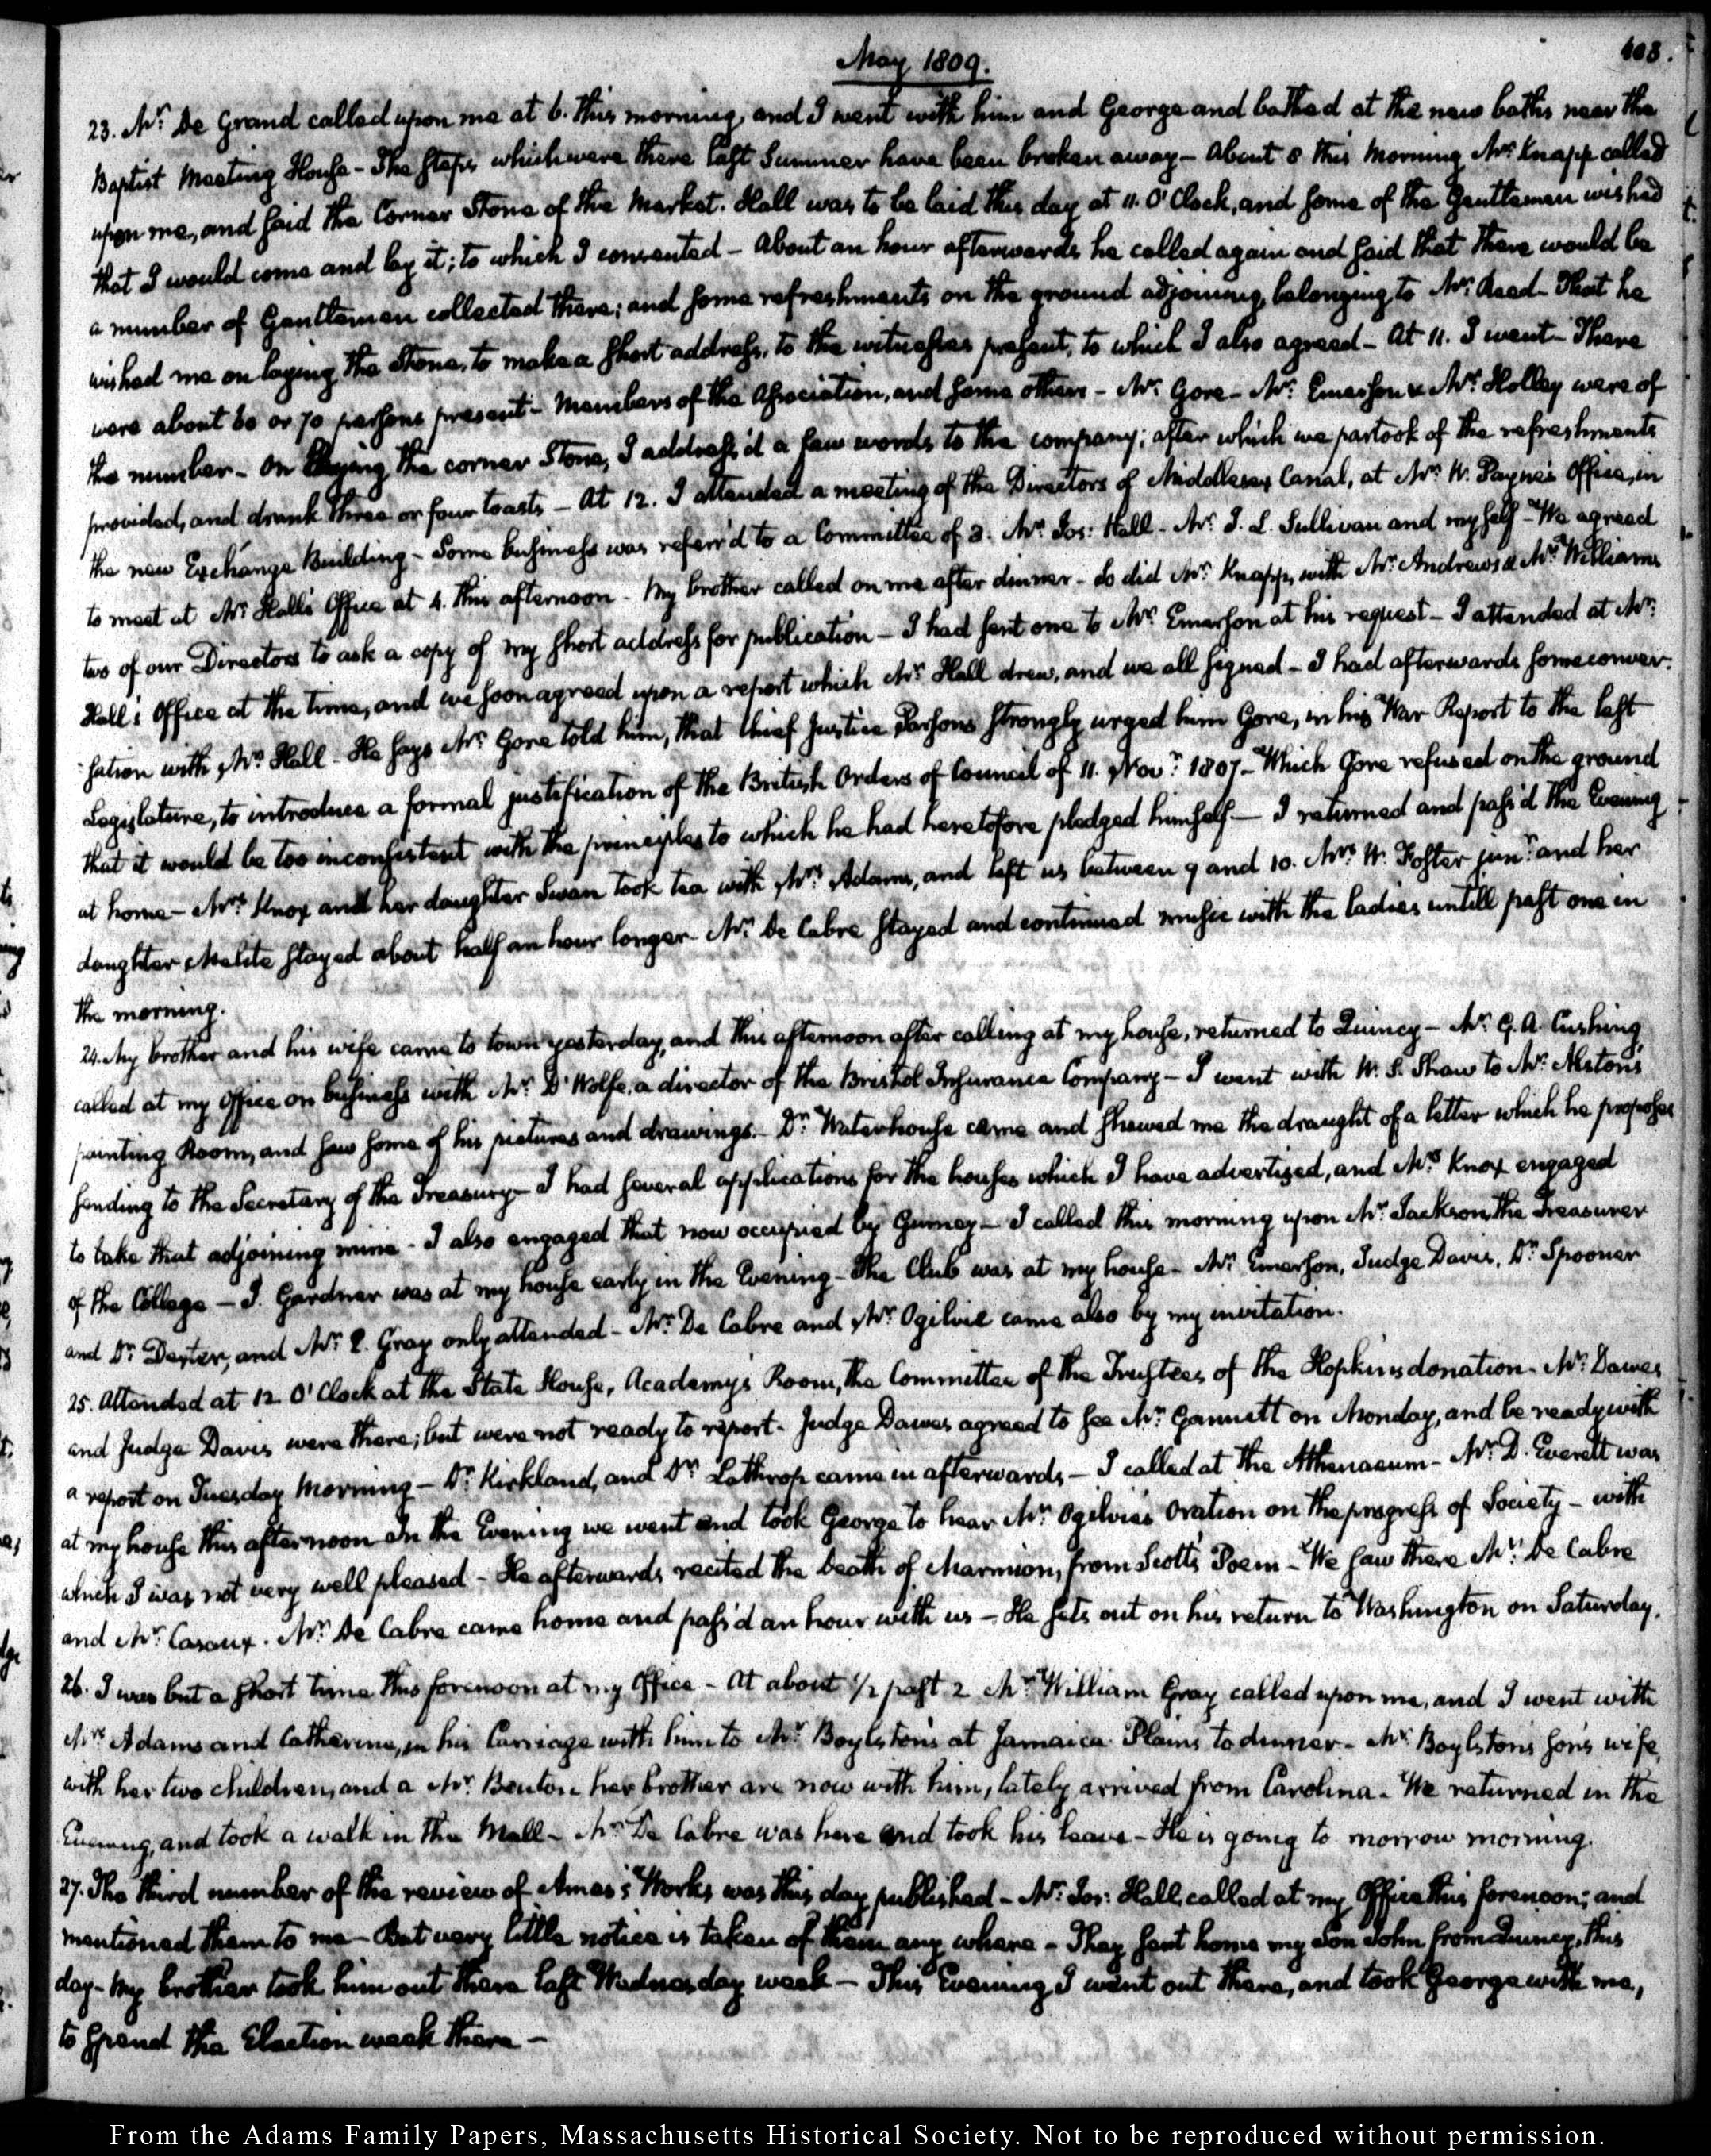 May 1809.
403.
23. Mr. De Grand called upon me at 6. this morning, and I went with him and George and bathed at the new baths near the
Baptist Meeting House - The steps which were there last Summer have been broken away - About 8 this morning Mr. Knapp called
upon me, and said the Corner Stone of the Market. Hall was to be laid this day at 11. O'Clock, and some of the Gentlemen wished
that I would come and lay it; to which I consented - About an hour afterwards he called again and said that there would be
a number of Gentlemen collected there; and some refreshments on the ground adjoining, belonging to Mr. Read - That he
wished me on laying the Stone, to make a short address, to the witnesses present, to which I also agreed - At 11. I went - There
were about 60 or 70 persons present - Members of the Association, and some others - Mr. Gore - Mr. Emerson & Mr. Holley were of
the number - On laying the corner Stone, I address'd a few words to the company; after which we partook of the refreshments
provided, and drank three or four toasts - At 12. I attended a meeting of the Directors of Middlesex Canal, at Mr. W. Payne's Office, in
the new Exchange Building - Some business was referr'd to a Committee of 3. Mr. Jos: Hall - Mr. J. L. Sullivan and myself - We agreed
to meet at Mr. Hall's Office at 4. this afternoon - My brother called on me after dinner - So did Mr. Knapp, with Mr. Andrews & Mr. Williams
two of our Directors to ask a copy of my short address for publication - I had sent one to Mr. Emerson at his request - I attended at Mr.
Hall's Office at the time, and we soon agreed upon a report which Mr. Hall drew, and we all signed - I had afterwards some conver-
-sation with Mr. Hall - He says Mr. Gore told him, that Chief Justice Parsons strongly urged him Gore, in his War Report to the last
Legislature, to introduce a formal justification of the British Orders of Council of 11. Novr. 1807 - Which Gore refused on the ground
that it would be too inconsistent with the principles to which he had heretofore pledged himself - I returned and pass'd the Evening
at home - Mrs. Knox and her daughter Swan took tea with Mrs. Adams, and left us between 9 and 10. Mrs. W. Foster junr. and her
daughter Melite stayed about half an hour longer - Mr. De Cabre stayed and continued music with the ladies untill past one in
the morning.
24. My brother and his wife came to town yesterday, and this afternoon after calling at my house, returned to Quincy - Mr. G. A. Cushing,
called at my Office on business with Mr. D'Wolfe, a director of the Bristol Insurance Company - I went with W. S. Shaw to Mr. Alston's
painting Room, and saw some of his pictures and drawings. - Dr. Waterhouse came and shewed me the draught of a letter which he proposes
sending to the Secretary of the Treasury - I had several applications for the houses which I have advertized, and Mrs. Knox engaged
to take that adjoining mine - I also engaged that now occupied by Gurney - I called this morning upon Mr. Jackson, the Treasurer
of the College - J. Gardner was at my house early in the Evening - The Club was at my house - Mr. Emerson, Judge Davis, Dr. Spooner
and Dr. Dexter, and Mr. E. Gray only attended - Mr. De Cabre and Mr. Ogilvie came also by my invitation.
25. Attended at 12. O'Clock at the State House, Academy's Room, the Committee of the Trustees of the Hopkins donation - Mr. Dawes
and Judge Davis were there; but were not ready to report - Judge Dawes agreed to see Mr. Gannett on Monday, and be ready with
a report on Tuesday Morning - Dr. Kirkland, and Dr. Lathrop came in afterwards - I called at the Athenaeum - Mr. D. Everett was
at my house this afternoon In the Evening we went and took George to hear Mr. Ogilvie's Oration on the progress of Society - with
which I was not very well pleased - He afterwards recited the Death of Marmion, from Scott's Poem - We saw there Mr. De Cabre
and Mr. Cazaux. Mr. De Cabre came home and pass'd an hour with us - He sets out on his return to Washington on Saturday.
26. I was but a short time this forenoon at my Office - At about 1/2 past 2 Mr. William Gray called upon me, and I went with
Mrs. Adams and Catherine, in his Carriage with him to Mr. Boylston's at Jamaica Plains to dinner - Mr. Boylston's son's wife,
with her two children, and a Mr. Benton her brother are now with him, lately arrived from Carolina - We returned in the
Evening, and took a walk in the Mall - Mr. De Cabre was here and took his leave - He is going to morrow morning.
27. The third number of the review of Ames's Works was this day published - Mr. Jos: Hall called at my Office this forenoon; and
mentioned them to me - But very little notice is taken of them any where - They sent home my Son John from Quincy, this
day - My brother took him out there last Wednesday week - This Evening I went out there, and took George with me,
to spend the Election week there -
From the Adams Family Papers, Massachusetts Historical Society. Not to be reproduced without permission.